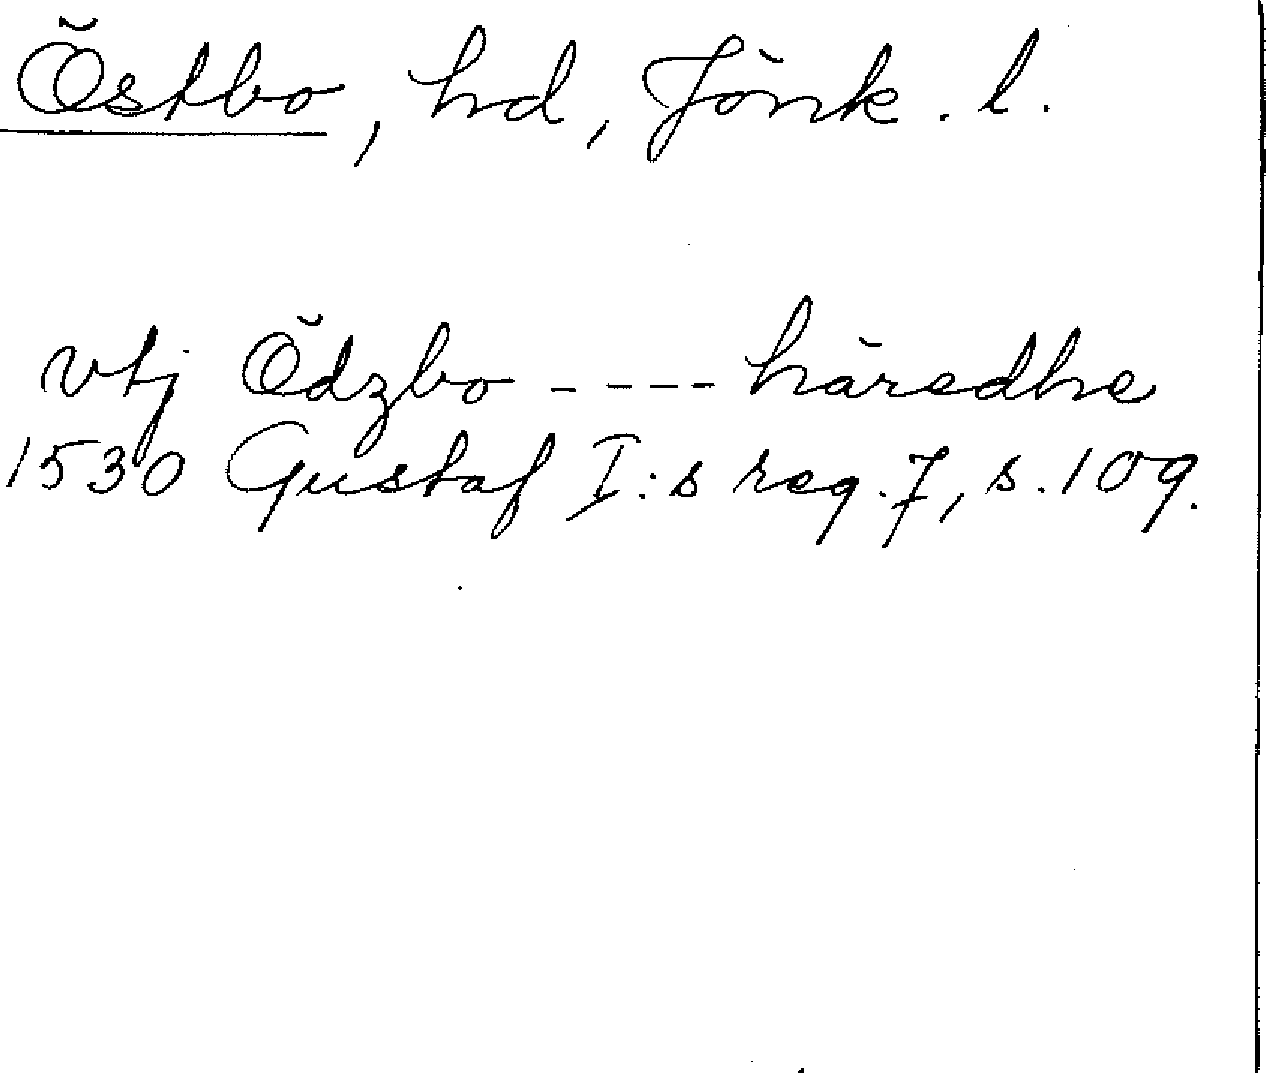 Östbo, hd, Jönk. l.
vtj Ödzbo - - - - häredhe
1530 Gustaf I:s reg. 7, s. 109.